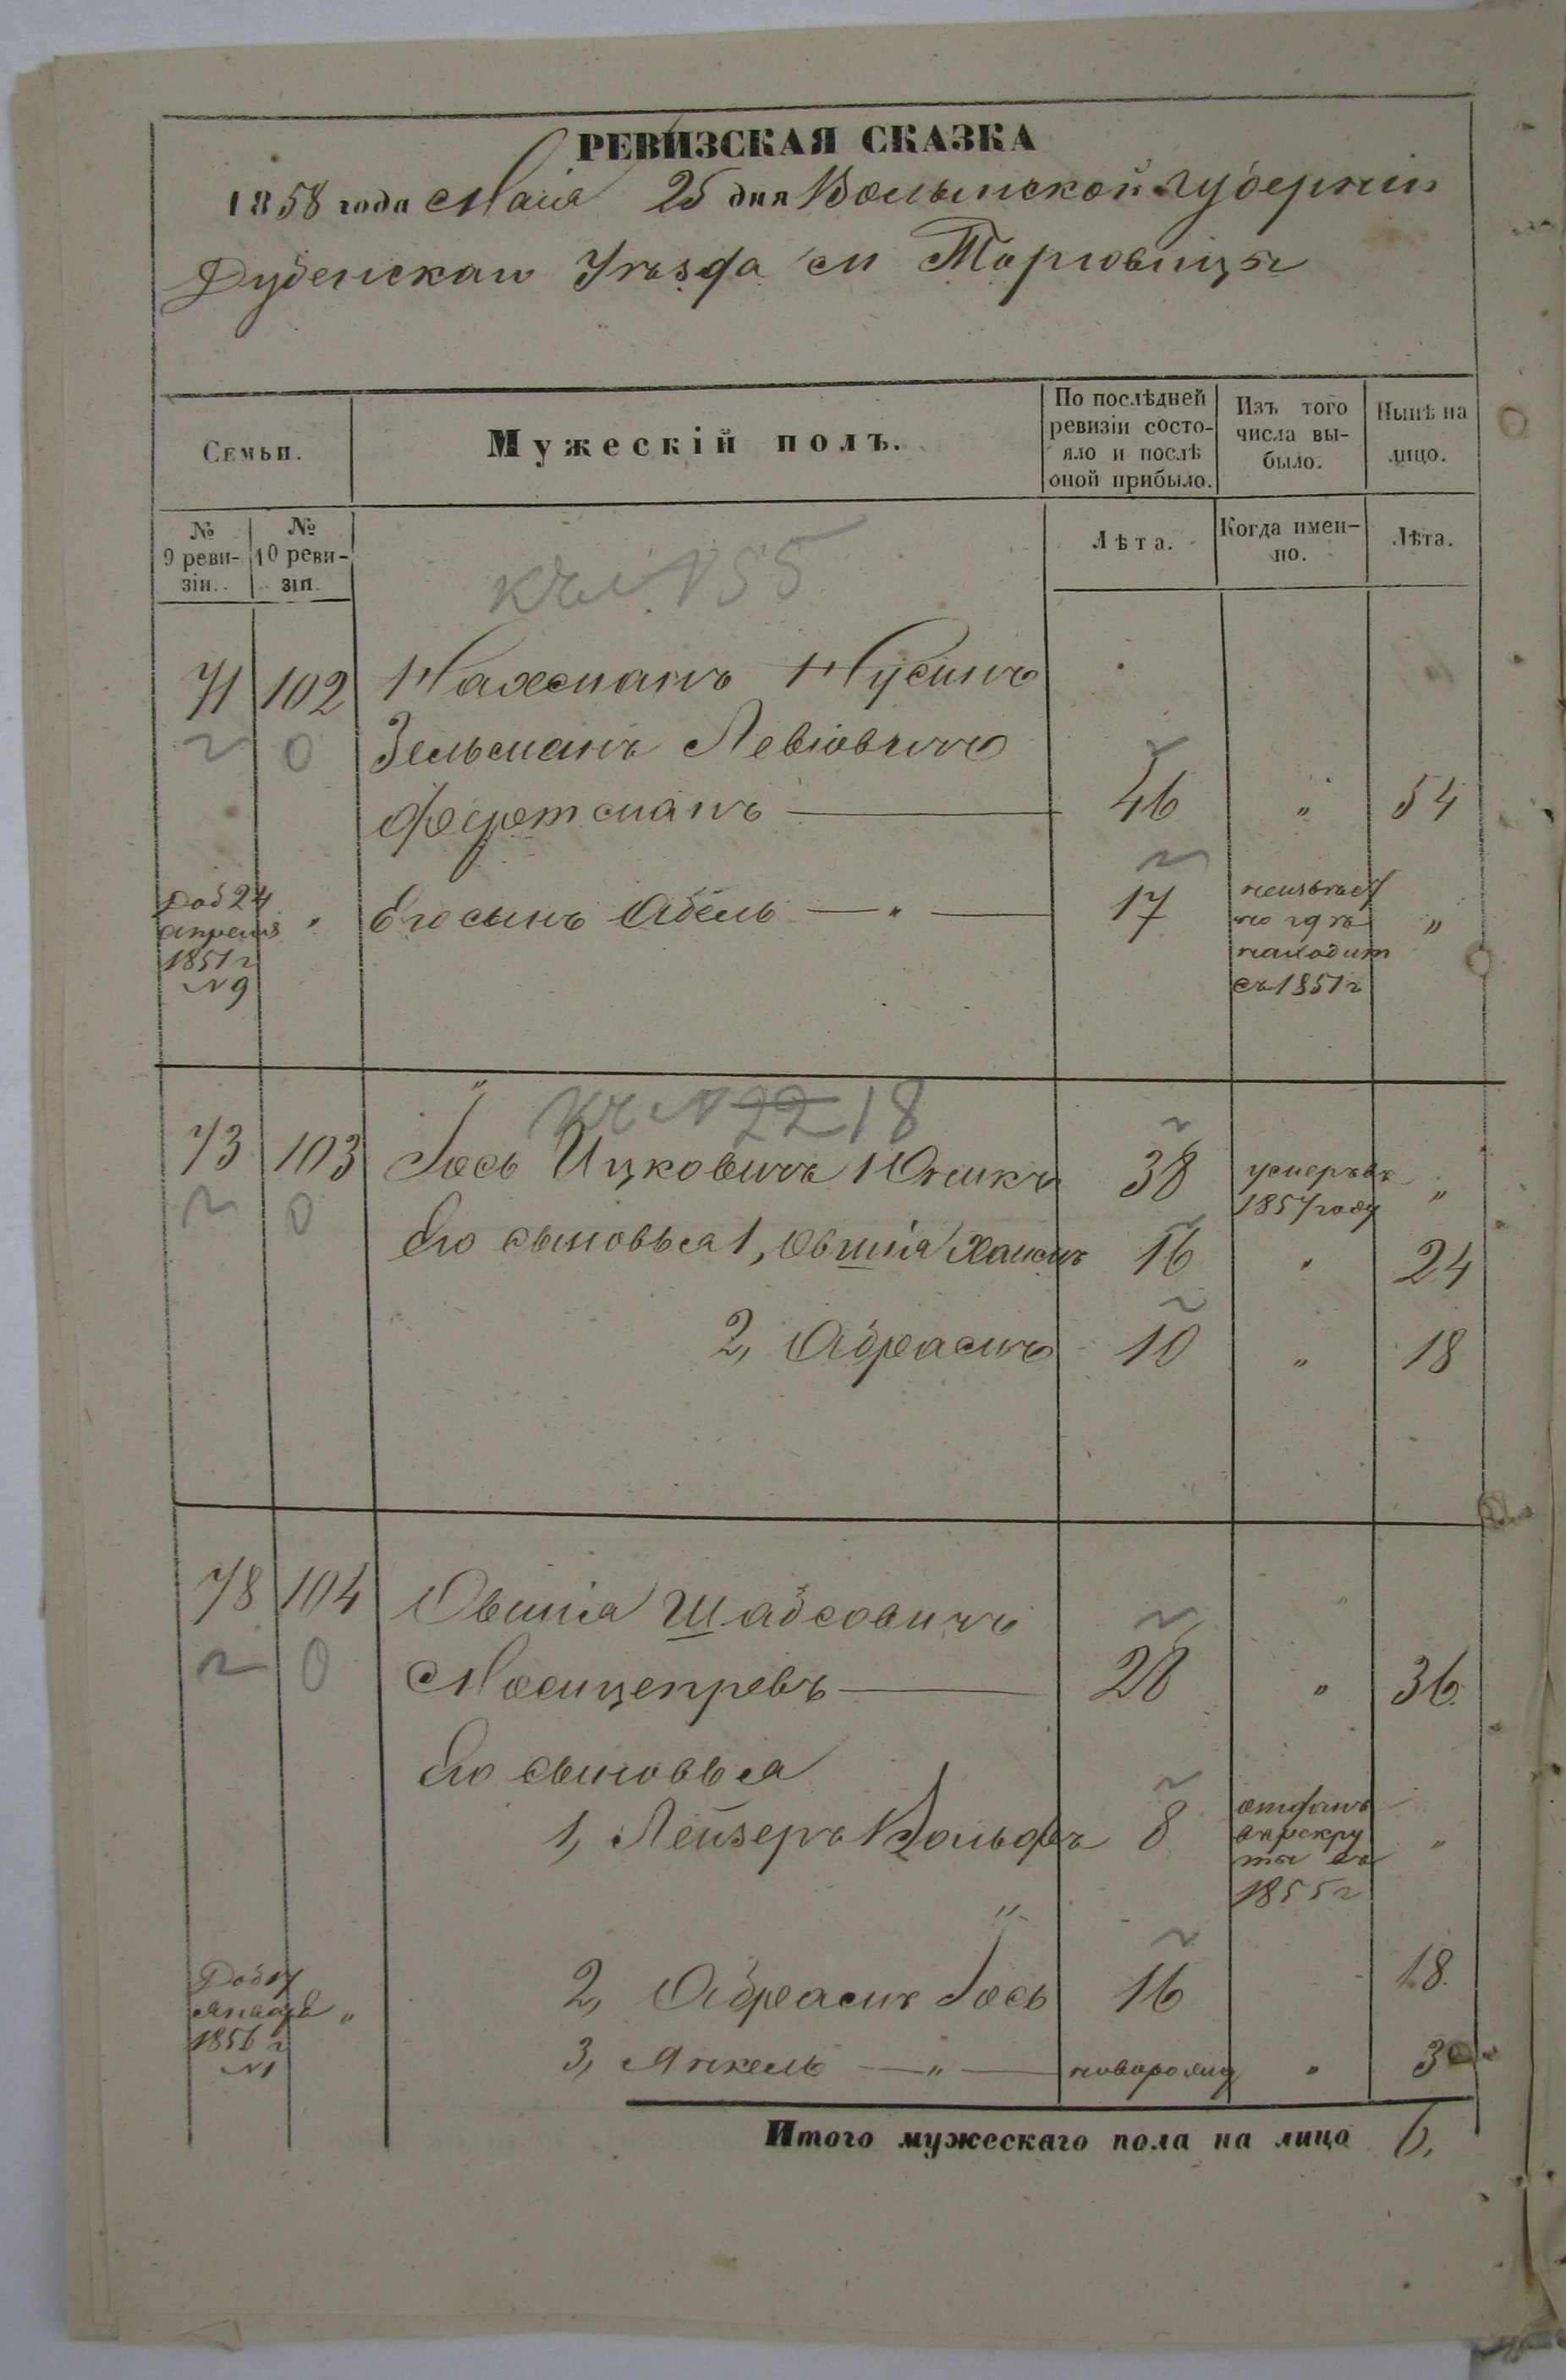 РЕВИЗСКАЯ СКАЗКА
1858 года Маія 25 дня Волынской Губерніи
Дубенскаго Уезда м Торговицы
Семьи.
Мужескій полъ.
По послѣдней ревизіи состо-
яло и послѣ
оной прибыло.
Изъ того
числа вы-
было.
Нынѣ на
лицо.
№
9 реви-
зіи.
№
10 реви-
зіи.
Лѣта.
Когда имен-
но.
Лѣта.
къ №55
71 102 Нахманъ Нусинъ
Зельманъ Левіовичъ
46 „ 54
Доб 24
апреля
1851 г
№ 9
Его сынъ Абель — „ — 17
неизвест
но где
находит
съ 1851 г
„
къ № 22 18
73 103 Іось Ицковичъ 38
умеръ въ
1857 году
„
Его сыновья 1, Овшія Хаимъ 16 „ 24
2, Абрамъ 10 „ 18
78 104 Овшія Шабсовичъ
28 „ 36
Его сыновья
1, Лейзеръ Вольфъ 8
отданъ
в рекру
ты въ
1855 г
„
2, Абрамъ Іось 16 18
Доб 17
января „
1856 г
№1
3, Янкель — „ — новорожд „ 3
Итого мужескаго пола на лицо 6.